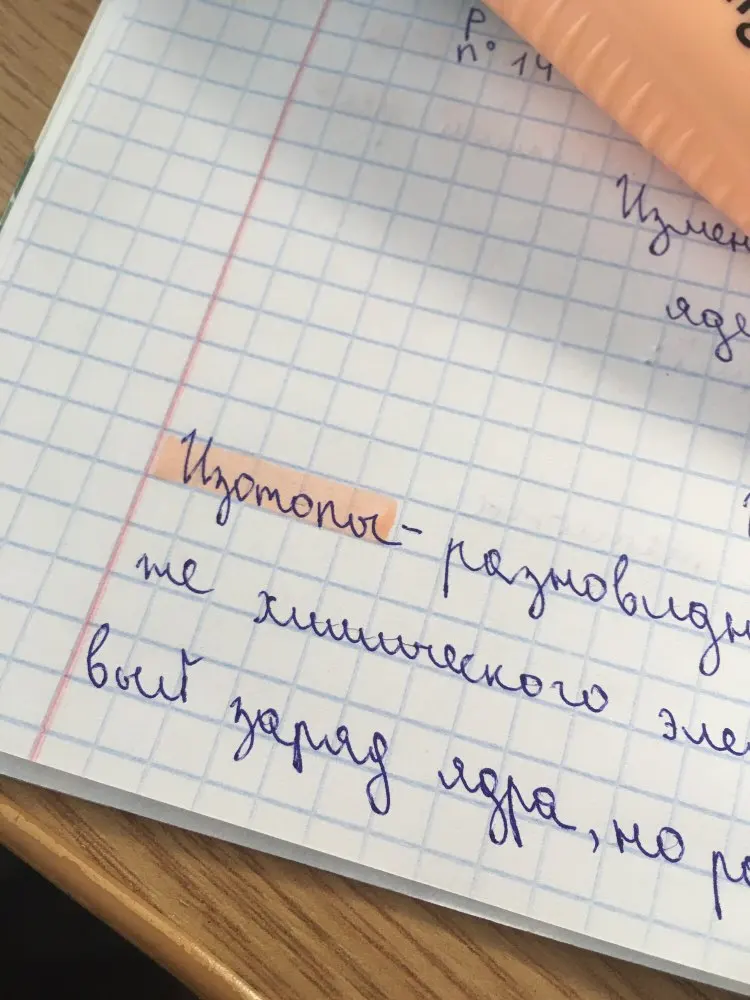 р
п° 14
Измен
яде
Изотопы - разновидн
же химического эле
вый заряд ядра, но ра